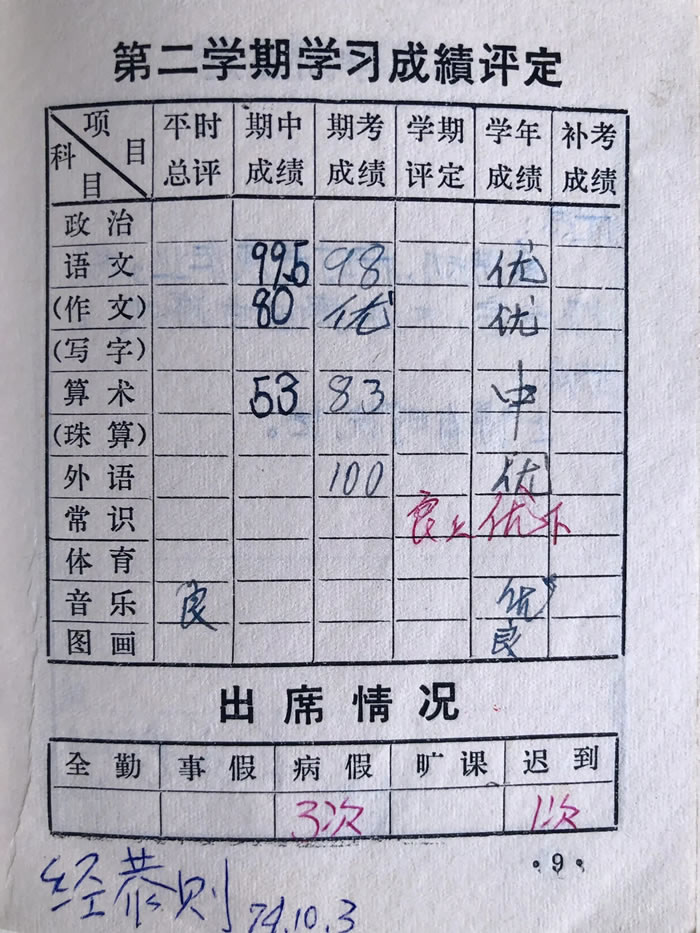 第二学期学习成績评定
项目 科目 平时总评 期中成绩 期考成绩 学期评定 学年成绩 补考成绩
政治
语文 99.5 98 优
(作文) 80 优 优
(写字)
算术 53 83 中
(珠算)
外语 100 优
常识 良上 优下
体育
音乐 良 优
图画 良
出席情况
全勤 事假 病假 旷课 迟到
3次 1次
·9·
经恭则 74.10.3